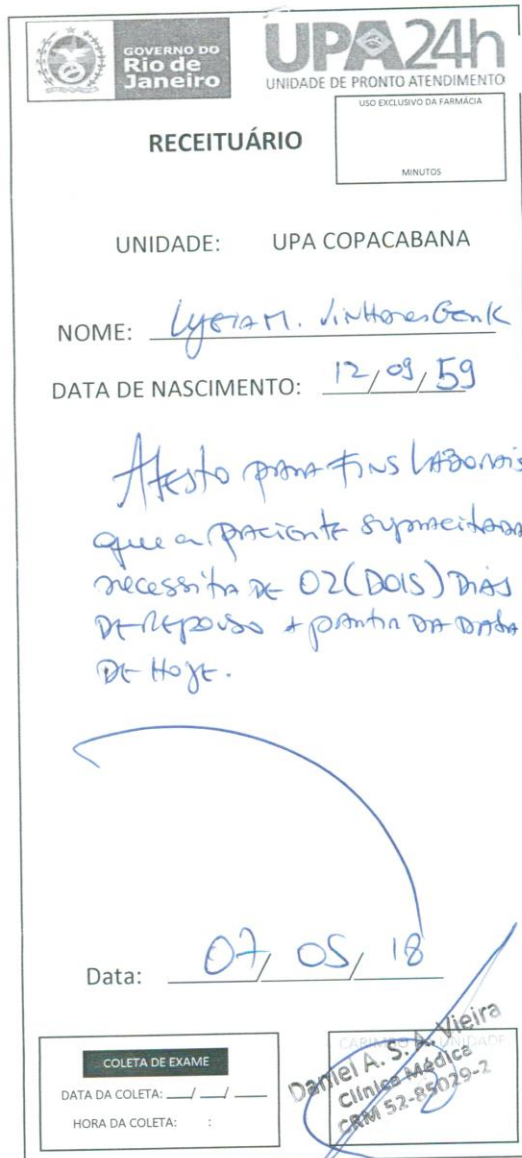 GOVERNO DO
Rio de
Janeiro
UPA24h
UNIDADE DE PRONTO ATENDIMENTO
RECEITUÁRIO
USO EXCLUSIVO DA FARMÁCIA
MINUTOS
UNIDADE: UPA COPACABANA
NOME: Lygia M. Vinhores Genk
DATA DE NASCIMENTO: 12/09/59
Atesto para fins laborais
que a paciente supracitada
necessita de 02 (DOIS) DIAS
DE REPOUSO A partir DA DATA
DE HOJE.
Data: 07/05/18
COLETA DE EXAME
DATA DA COLETA: __/__/__
HORA DA COLETA: :
CARIMBO UNIDADE
Daniel A. S. A. Vieira
Clínica Médica
CRM 52-85029-2